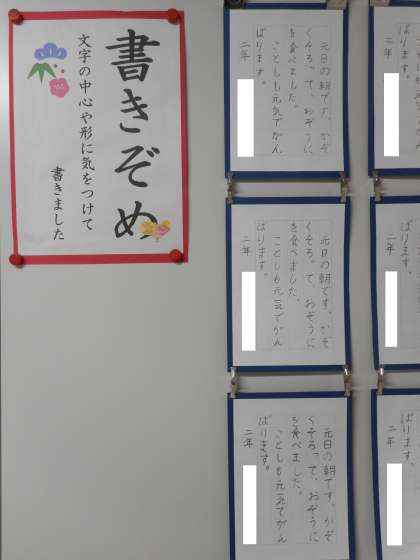 書きぞめ
文字の中心や形に気をつけて
書きました
元日の朝です。かぞ
くそろって、おぞうに
を食べました。
ことしも元気でがん
ばります。
二年
ばります。
二年
元日の朝です。かぞ
くそろって、おぞうに
を食べました。
ことしも元気でがん
ばります。
二年
ばります。
二年
元日の朝です。かぞ
くそろって、おぞうに
を食べました。
ことしも元気でがん
ばります。
二年
ばります。
二年